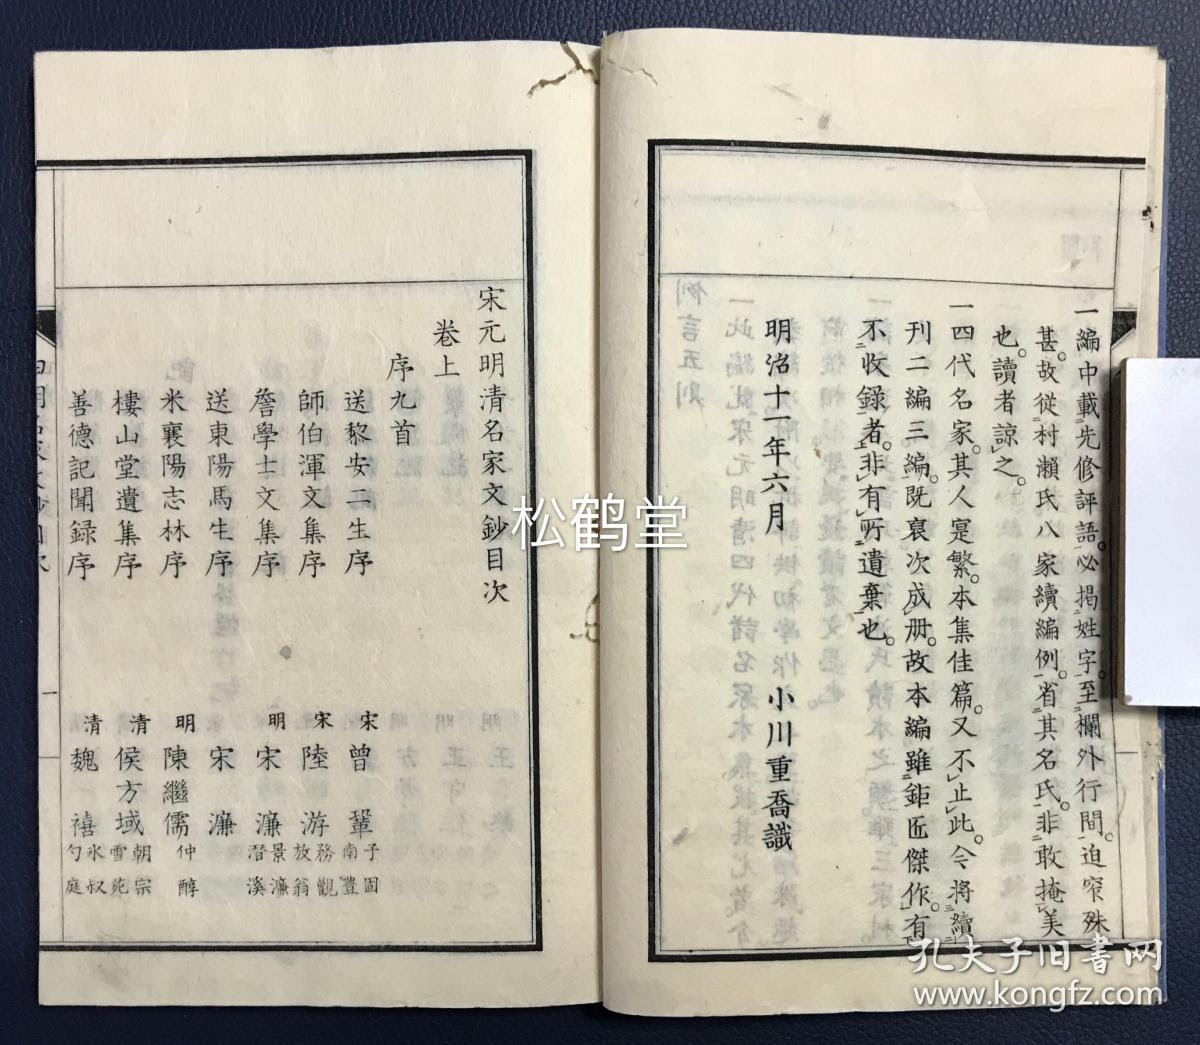 一編中載先修評語。必揭姓字。至欄外行間。迫窄殊
甚。故從村瀨氏八家續編例。省其名氏。非敢掩美
也。讀者諒之。
一四代名家。其人寔繁。本集佳篇。又不止此。今將續
刊二編三編。既裒次成册。故本編雖鉅匠傑作。有
不收錄者。非有所遺棄也。
明治十一年六月　小川重喬識
宋元明清名家文鈔目次
卷上
序九首
送黎安二生序　宋　曾鞏　子固　南豐
師伯渾文集序　宋　陸游　務觀　放翁
詹學士文集序　明　宋濂　景濂　潛溪
送東陽馬生序　宋濂
米襄陽志林序　明　陳繼儒　仲醇
樓山堂遺集序　清　侯方域　朝宗　雪苑
善德記聞録序　清　魏禧　氷叔　勺庭
松鹤堂
孔夫子旧书网
www.kongfz.com